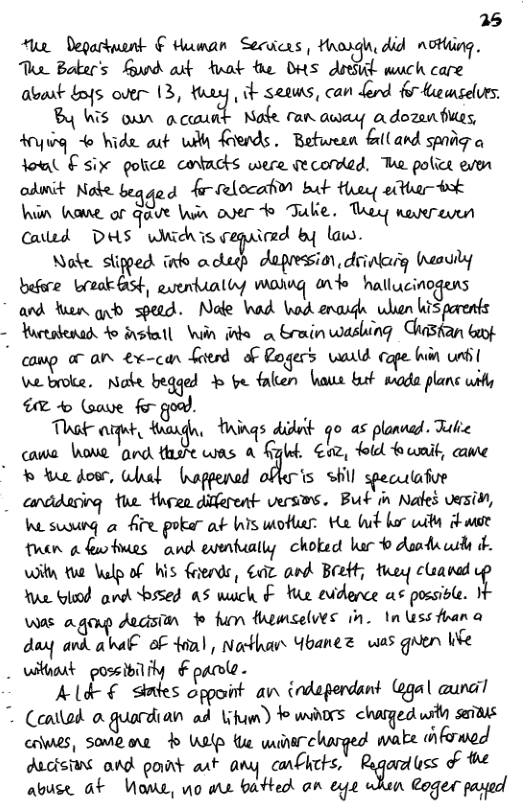 25
the Department of Human Services, though, did nothing.
The Baker's found out that the DHS doesn't much care
about boys over 13, they, it seems, can fend for themselves.
By his own account Nate ran away a dozen times,
trying to hide out with friends. Between fall and spring a
total of six police contacts were recorded. The police even
admit Nate begged for relocation but they either took
him home or gave him over to Julie. They never even
called DHS which is required by law.
Nate slipped into a deep depression, drinking heavily
before breakfast, eventually moving on to hallucinogens
and then onto speed. Nate had had enough when his parents
threatened to install him into a brain washing Christian boot
camp or an ex-con friend of Roger's would rape him until
he broke. Nate begged to be taken home but made plans with
Eric to leave for good.
That night, though, things didn't go as planned. Julie
came home and there was a fight. Eric, told to wait, came
to the door. What happened after is still speculative
concidering the three different versions. But in Nate's version,
he swung a fire poker at his mother. He hit her with it more
than a few times and eventually choked her to death with it.
With the help of his friends, Eric and Brett, they cleaned up
the blood and tossed as much of the evidence as possible. It
was a group decision to turn themselves in. In less than a
day and a half of trial, Nathan Ybanez was given life
without possibility of parole.
A lot of states appoint an independant legal council
(called a guardian ad litum) to minors charged with serious
crimes, some one to help the minor charged make informed
decisions and point out any conflicts. Regardless of the
abuse at home, no one batted an eye when Roger payed